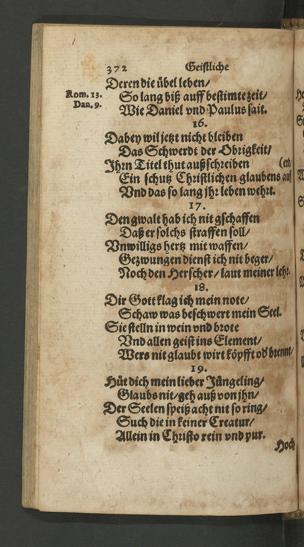 372 Geistliche
Deren die übel leben/
Rom. 13.
So lang biß auff bestimte zeit/
Dan. 9.
Wie Daniel vnd Paulus sait.
16.
Dabey wil jetzt nicht bleiben
Das Schwerdt der Obrigkeit/
Ihrn Titel thut außschreiben (en
Ein schutz Christlichen glaubens auf
Vnd das so lang jhr leben wehrt.
17.
Den gwalt hab ich nit gschaffen
Daß er solchs straffen soll/
Vnwilligs hertz mit waffen/
Gezwungen dienst ich nit beger/
Noch den Herscher/ laut meiner lehr.
18.
Dir Gott klag ich mein note/
Schaw was beschwert mein Seel.
Sie stelln in wein vnd brote
Vnd allen geist ins Element/
Wers nit glaubt wirt köpfft od' brennt/
19.
Hüt dich mein lieber Jüngeling/
Glaubs nit/ geh auß von jhn/
Der Seelen speiß acht nit so ring/
Such die in keiner Creatur/
Allein in Christo rein vnd pur.
Hoch